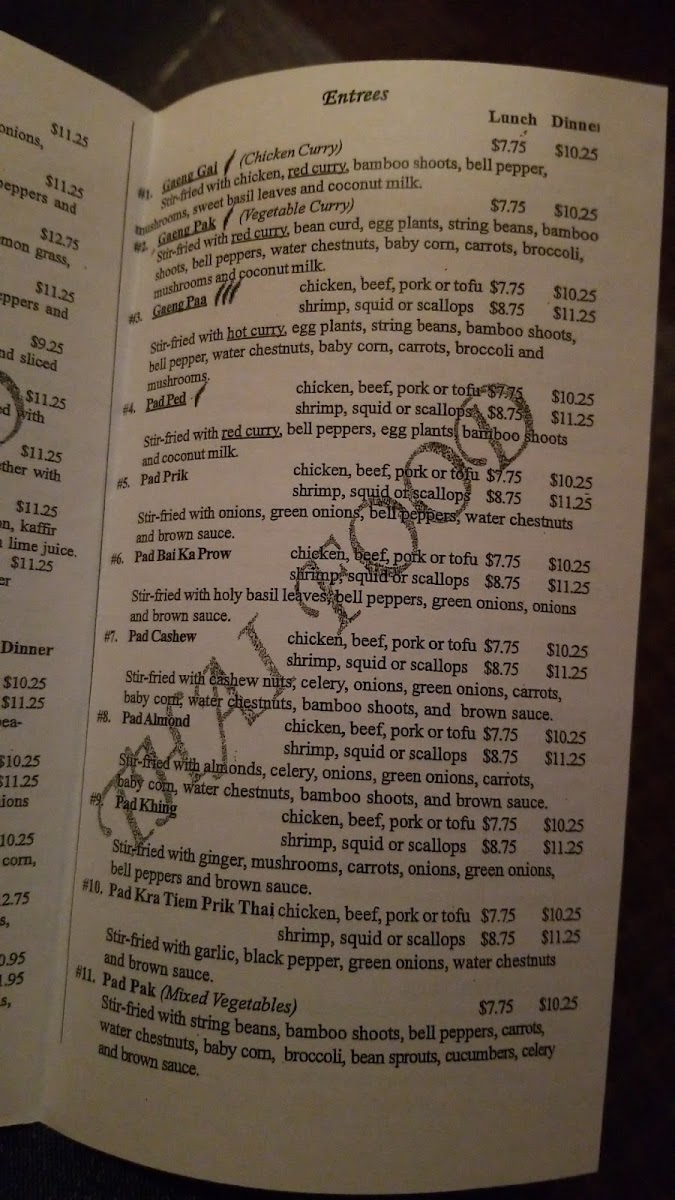 onions,
$11.25
$11.25
peppers and
$12.75
mon grass,
$11.25
eppers and
$9.25
nd sliced
$11.25
ed with
$11.25
ether with
$11.25
on, kaffir
lime juice.
$11.25
er
Dinner
$10.25
$11.25
ea-
$10.25
$11.25
ions
10.25
corn,
2.75
s,
0.95
1.95
s,
Entrees
Lunch Dinner
#1. Gaeng Gai (Chicken Curry) $7.75 $10.25
Stir-fried with chicken, red curry, bamboo shoots, bell pepper,
mushrooms, sweet basil leaves and coconut milk.
#2. Gaeng Pak (Vegetable Curry) $7.75 $10.25
Stir-fried with red curry, bean curd, egg plants, string beans, bamboo
shoots, bell peppers, water chestnuts, baby corn, carrots, broccoli,
mushrooms and coconut milk.
#3. Gaeng Paa chicken, beef, pork or tofu $7.75 $10.25
shrimp, squid or scallops $8.75 $11.25
Stir-fried with hot curry, egg plants, string beans, bamboo shoots,
bell pepper, water chestnuts, baby corn, carrots, broccoli and
mushrooms.
#4. Pad Ped chicken, beef, pork or tofu $7.75 $10.25
shrimp, squid or scallops $8.75 $11.25
Stir-fried with red curry, bell peppers, egg plants, bamboo shoots
and coconut milk.
#5. Pad Prik chicken, beef, pork or tofu $7.75 $10.25
shrimp, squid or scallops $8.75 $11.25
Stir-fried with onions, green onions, bell peppers, water chestnuts
and brown sauce.
#6. Pad Bai Ka Prow chicken, beef, pork or tofu $7.75 $10.25
shrimp, squid or scallops $8.75 $11.25
Stir-fried with holy basil leaves, bell peppers, green onions, onions
and brown sauce.
#7. Pad Cashew chicken, beef, pork or tofu $7.75 $10.25
shrimp, squid or scallops $8.75 $11.25
Stir-fried with cashew nuts, celery, onions, green onions, carrots,
baby corn, water chestnuts, bamboo shoots, and brown sauce.
#8. Pad Almond chicken, beef, pork or tofu $7.75 $10.25
shrimp, squid or scallops $8.75 $11.25
Stir-fried with almonds, celery, onions, green onions, carrots,
baby corn, water chestnuts, bamboo shoots, and brown sauce.
#9. Pad Khing chicken, beef, pork or tofu $7.75 $10.25
shrimp, squid or scallops $8.75 $11.25
Stir-fried with ginger, mushrooms, carrots, onions, green onions,
bell peppers and brown sauce.
#10. Pad Kra Tiem Prik Thai chicken, beef, pork or tofu $7.75 $10.25
shrimp, squid or scallops $8.75 $11.25
Stir-fried with garlic, black pepper, green onions, water chestnuts
and brown sauce.
#11. Pad Pak (Mixed Vegetables) $7.75 $10.25
Stir-fried with string beans, bamboo shoots, bell peppers, carrots,
water chestnuts, baby corn, broccoli, bean sprouts, cucumbers, celery
and brown sauce.